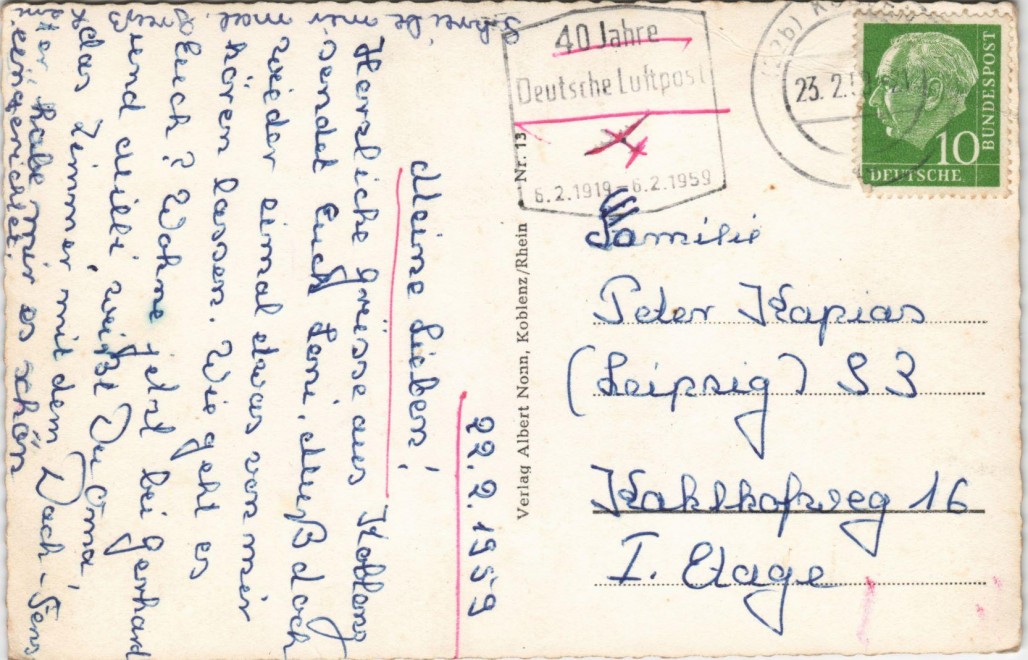 22.2.1959
Meine Lieben!
Herzliche Grüsse aus Koblenz
sendet Euch Leni. Muß doch
wieder einmal etwas von mir
hören lassen. Wie geht es
Euch? Wohne jetzt bei Gerhard
und Milli, weißt Du Oma,
das Zimmer mit dem Dach-Fens
ter. Habe mir es schön
eingerichtet.
Schreibe mir
mal
Verlag Albert Nonn, Koblenz/Rhein Nr. 13
40 Jahre
Deutsche Luftpost
6.2.1919-6.2.1959
(22b) KO
23.2.5
10
DEUTSCHE
BUNDESPOST
Familie
Peter Kapias
(Leipzig) S 3
Kahlhofweg 16
I. Etage